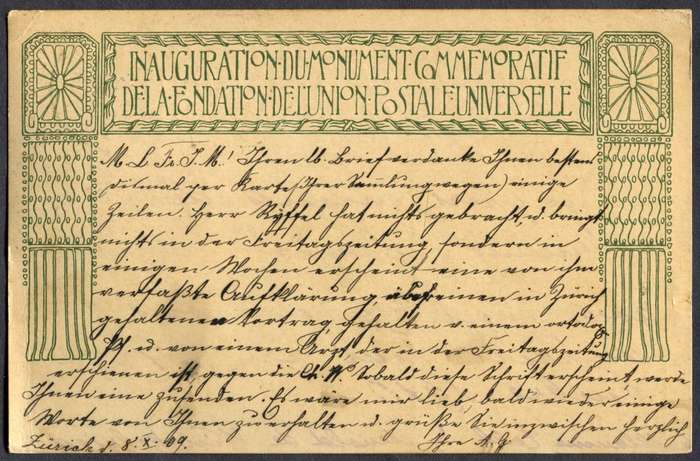 INAUGURATION·DU·MONUMENT·COMMEMORATIF
DE·LA·FONDATION·DE·L'UNION·POSTALE·UNIVERSELLE
M. L. Fr. J. M.! Ihren lb. Brief verdanke Ihnen bestens
ditmal per Karte (Ihrer Sammlung wegen) einige
Zeilen. Herr Ryffel hat nichts gebracht, u. bringt
nichts in der Freitagszeitung, sondern in
einigen Wochen erscheint eine von ihm
verfaßte Aufklärung über einen in Zürich
gehaltenen Vortrag, gehalten v. einem ortodox
Pf. u. von einem Arzt, der in der Freitagszeitung
erschienen ist, gegen die Ch. W. Sobald diese Schrift erscheint werde
Ihnen eine zusenden. Es wäre mir lieb bald wieder einige
Worte von Ihnen zu erhalten u. grüße Sie inzwischen herzlich
Zürich d. 8. X. 09. Ihre A. G